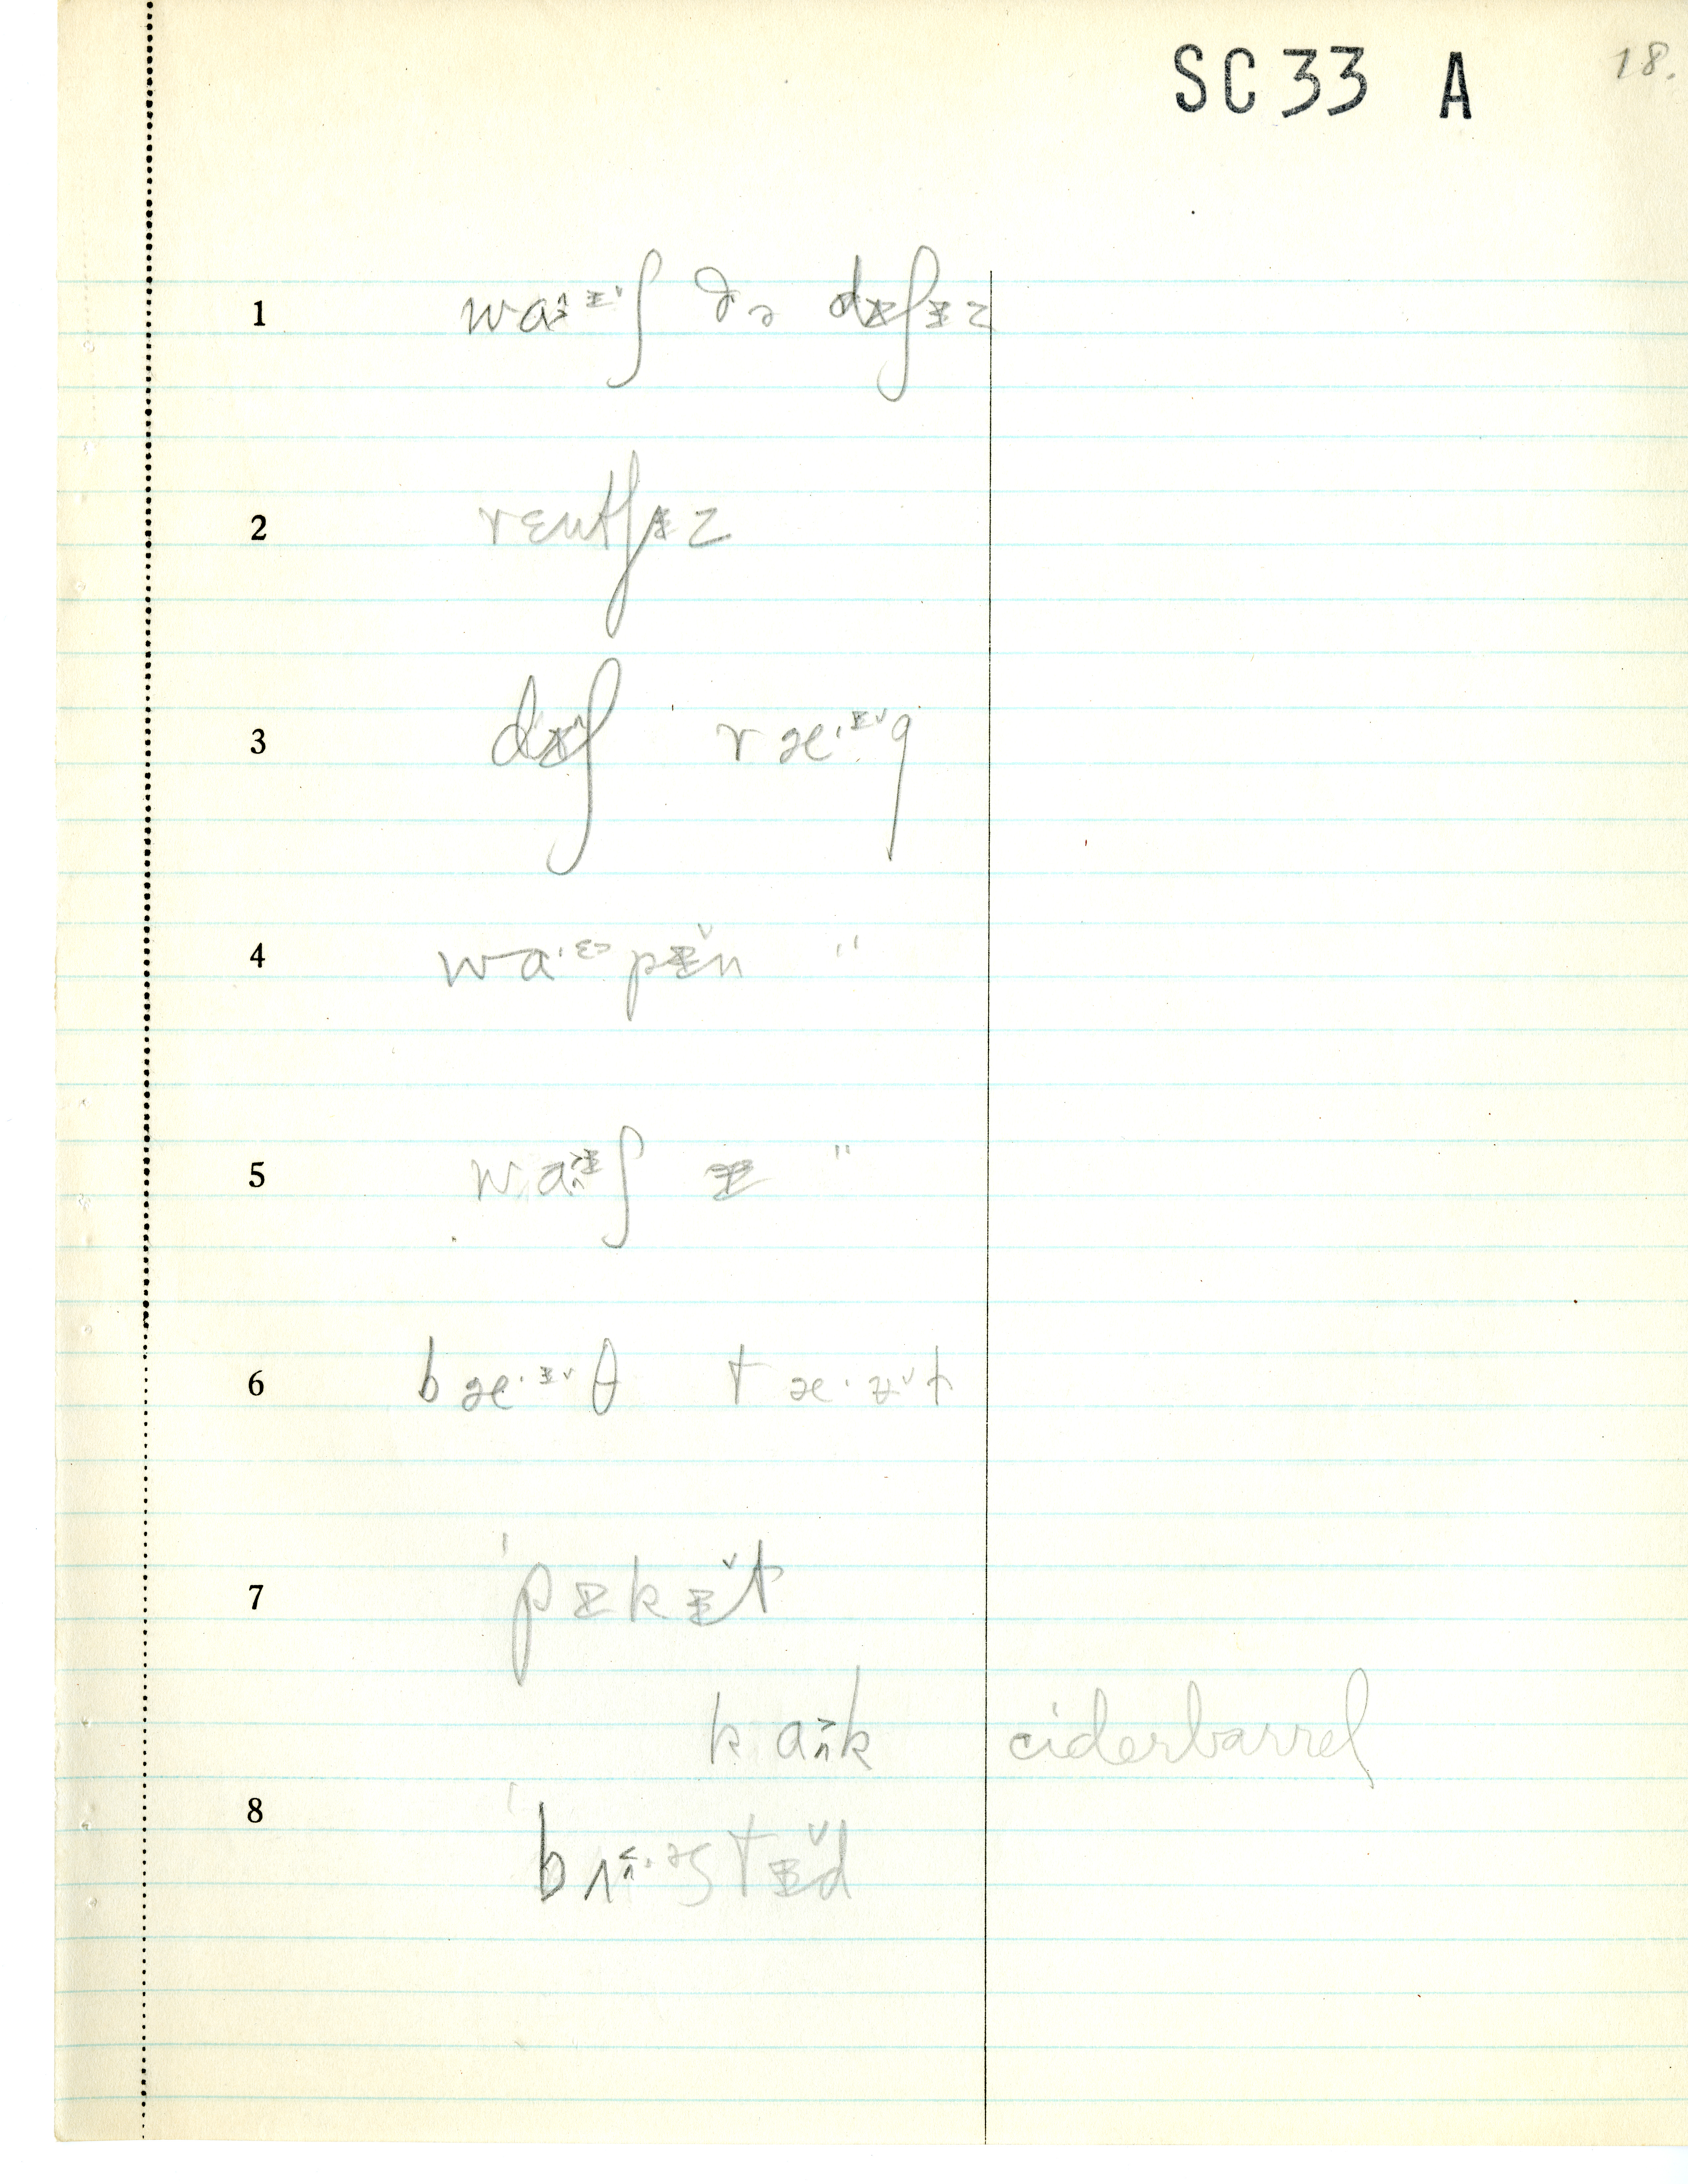 SC 33 A 18.
1 wa˃ᵻ˅ʃ ðə dᵻʃᵻz
2 rɛntʃᵻz
3 dᵻʃ ræ·ᵻ˅g
4 wa·ᵋ˃pᵻ̌n "
5 wa˃ᵻʃ ᵻ "
6 bæ·ᵻ˅θ tæ·ᵻ˅t
7 'pᵻkᵻ̌t
ka˃k ciderbarrel
8 'bʌ·ᵊstᵻ̌d